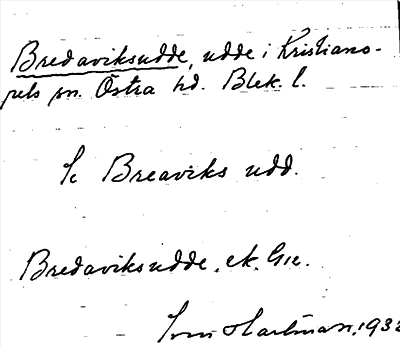 Bredaviksudde, udde i Kristiano-
pels sn. Östra hd. Blek. l.
Se Breaviks udd.
Bredaviksudde, ek.
Hartman, 1932